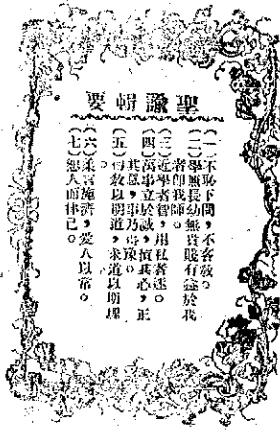 聖諭輯要
(一)不恥下問,不吝教。
(二)學無長幼無貴賤有益於我
者即我師。
(三)近學者智,用私者迷。
(四)萬事立於誠,慎其心,正
其思,事乃
(五)教以明道,求道以明理
(六)柔施濟,愛人以常。
(七)恕人而律己。